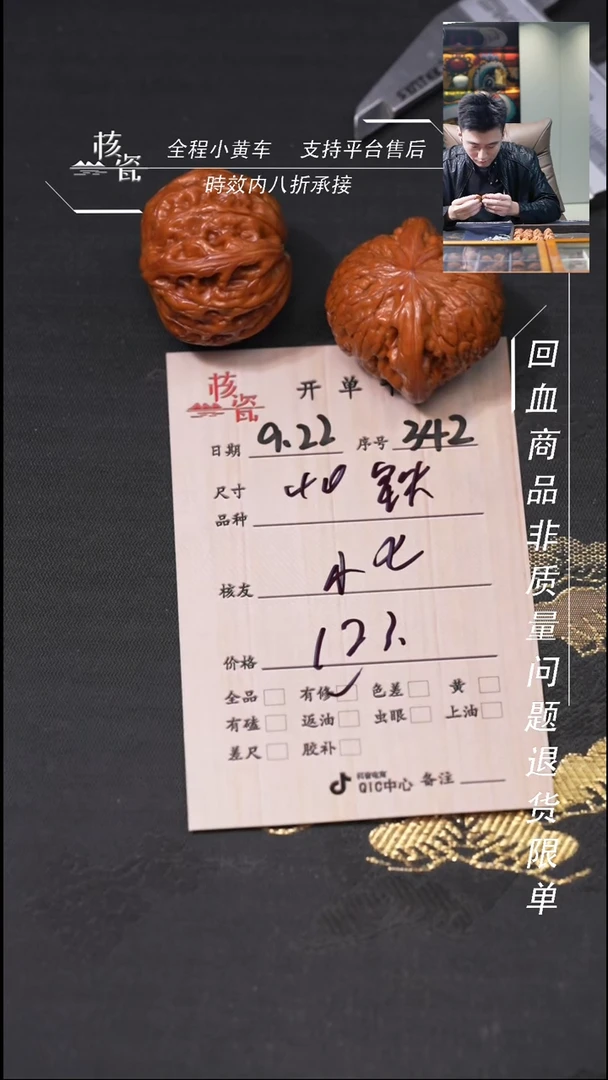 核瓷
全程小黄车 支持平台售后
時效内八折承接
回血商品非质量问题退货限单
核瓷
开单
日期 9.22 序号 342
尺寸
品种
核友
价格
全品 有修 色差 黄
有磕 返油 虫眼 上油
差尺 胶补
抖音电商
QIC中心 备注